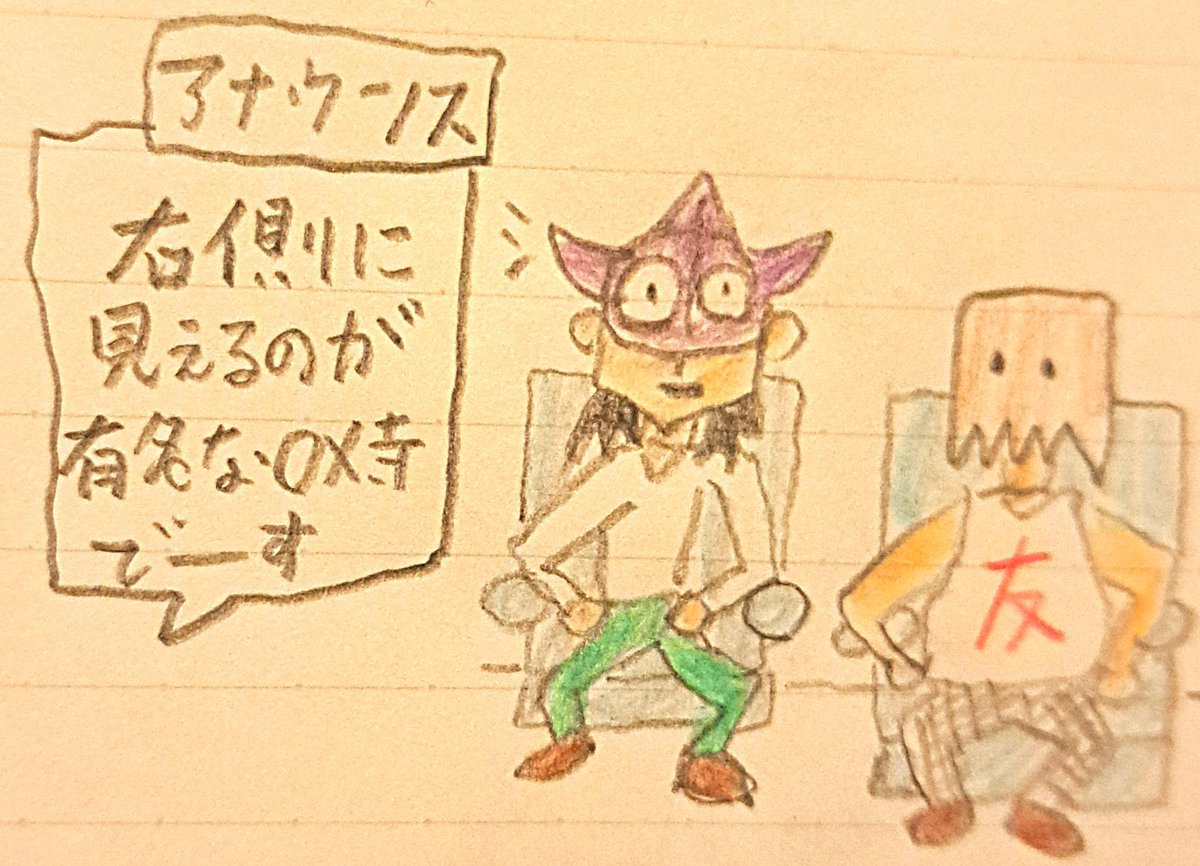 アナウンス
右側に
見えるのが
有名な〇×寺
でーす
友